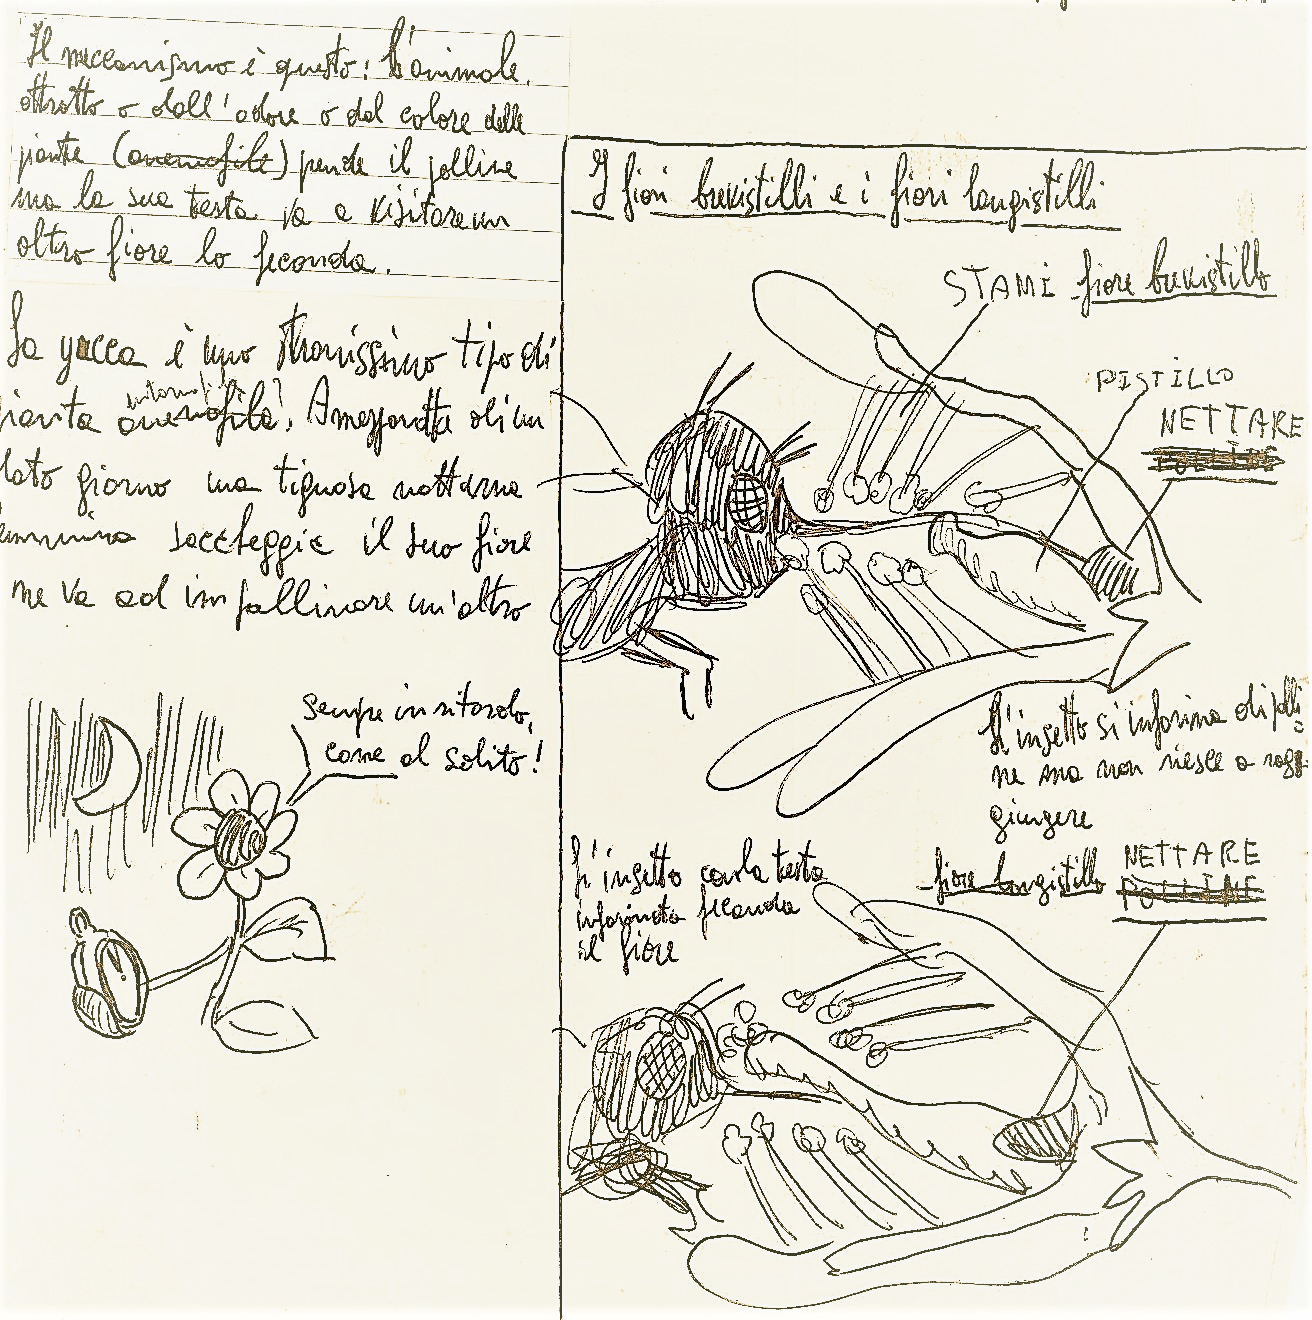 Il meccanismo è questo: L'animale,
attratto o dall'odore o dal colore delle
piante (anemofile) pende il polline
ma la sua testa va a visitare un
altro fiore lo feconda.
La yucca è uno stranissimo tipo di
pianta anemofila. A mezzanotte di un
dato giorno una tignosa notturna
femmina saccheggia il suo fiore
ne va ad impollinare un'altro
sempre in ritardo,
come al solito!
I fiori brevistilli e i fiori longistilli
STAMI fiore brevistillo
PISTILLO
NETTARE
POLLINE
L'insetto si infarina di polli=
ne ma non riesce a rag=
giungere
L'insetto con la testa
infarinata feconda
il fiore
fiore longistillo NETTARE
POLLINE